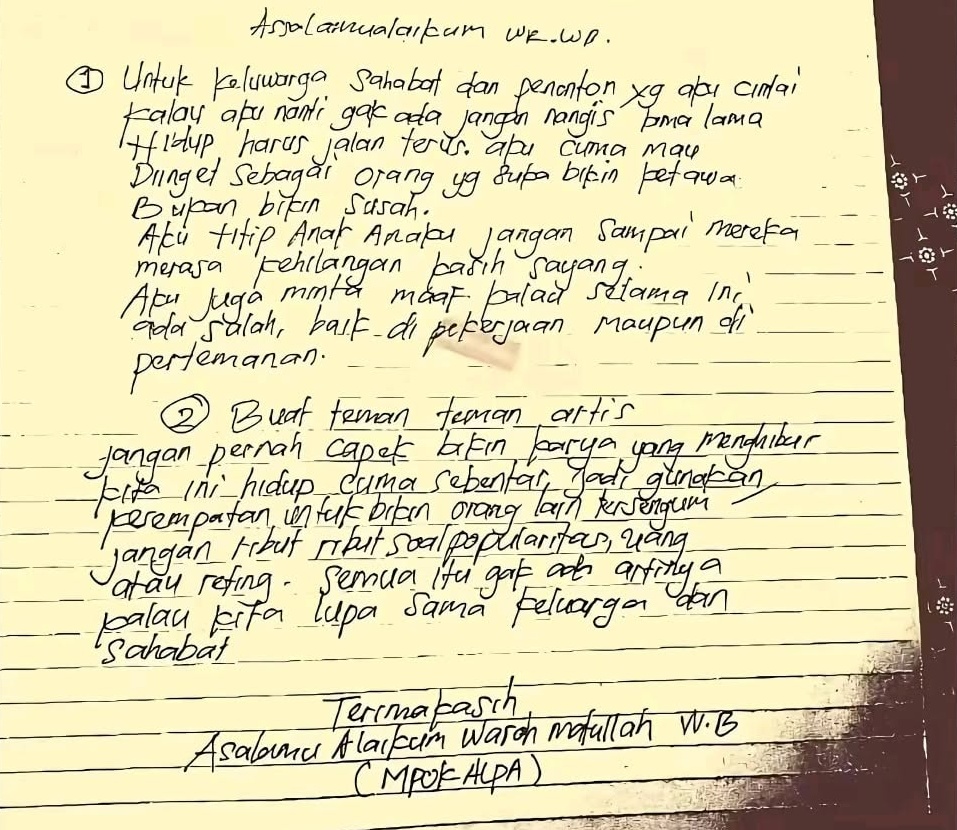 Assalamualaikum WR.WB.
① Untuk keluwarga Sahabat dan penonton yg aku cintai
kalau aku nanti gak ada jangan nangis lama lama
Hidup harus jalan terus. aku cuma mau
Diinget Sebagai orang yg suka bikin ketawa
Bukan bikin susah.
Aku titip Anak Anaku jangan Sampai mereka
merasa kehilangan kasih sayang.
Aku juga minta maaf kalau selama ini
ada salah, baik di pekerjaan maupun di
pertemanan.
② Buat teman teman artis
jangan pernah capek bikin karya yang menghibur
kita ini hidup cuma sebentar, Jadi gunakan
kesempatan untuk bikin orang lain tersengum
jangan ribut ribut soal popularitas, uang
atau reting. Semua itu gak ada artinya
kalau kita lupa sama keluarga dan
Sahabat
Terimakasih
Asalamu Alaikum Waroh matullah W.B
(MPOK ALPA)